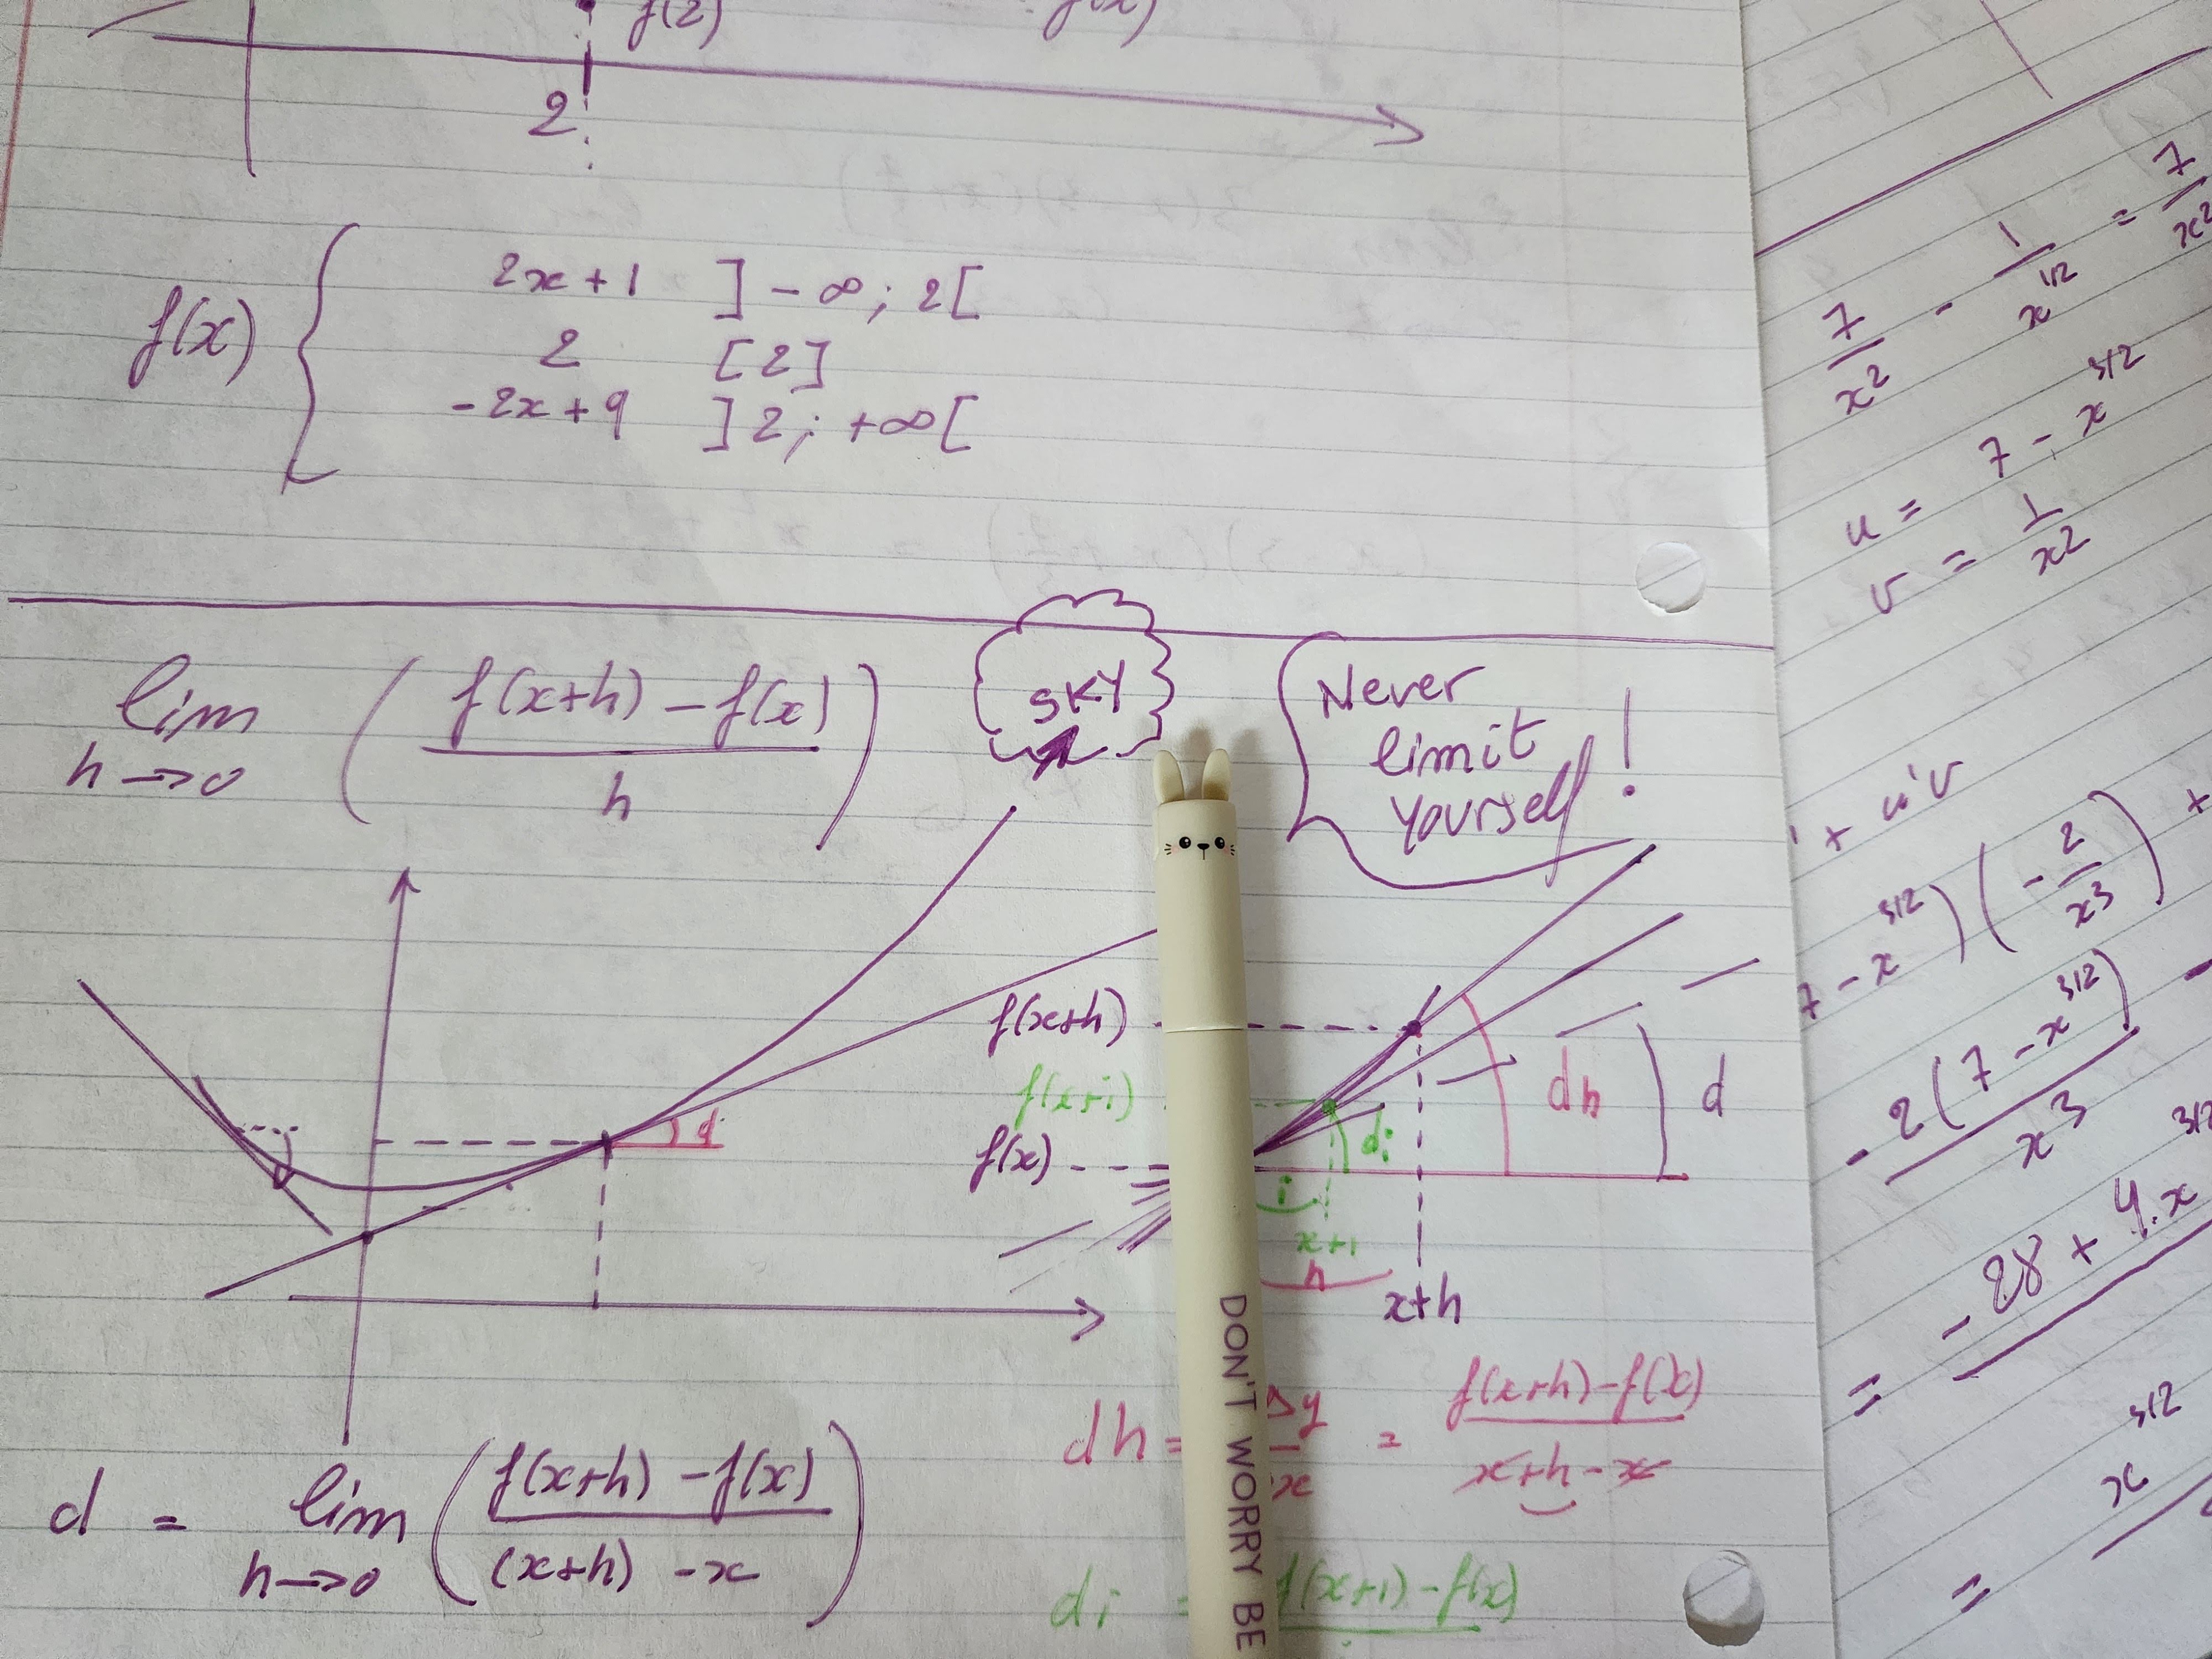 f(2) f(x)
2
f(x) {
2x+1 ]-∞; 2[
2 [2]
-2x+9 ]2; +∞[
lim h→0 ( f(x+h) - f(x) / h )
SKY
Never
limit
yourself!
f(x+h)
f(x+i)
f(x)
d
di
dh
d
i
x+i
h
x+h
dh = Δy / x = f(x+h)-f(x) / x+h-x
d = lim h→0 ( f(x+h) - f(x) / (x+h) - x )
di = f(x+i)-f(x)
DON'T WORRY BE
7/x² - 1/x^1/2 = 7/x²
u = 7 - x^3/2
v = 1/x²
+ u'v
7 - x^3/2 ) ( - 2/x³ ) +
- 2(7 - x^3/2) / x³ -
= -28 + 4.x^3/2
x^3/2
=